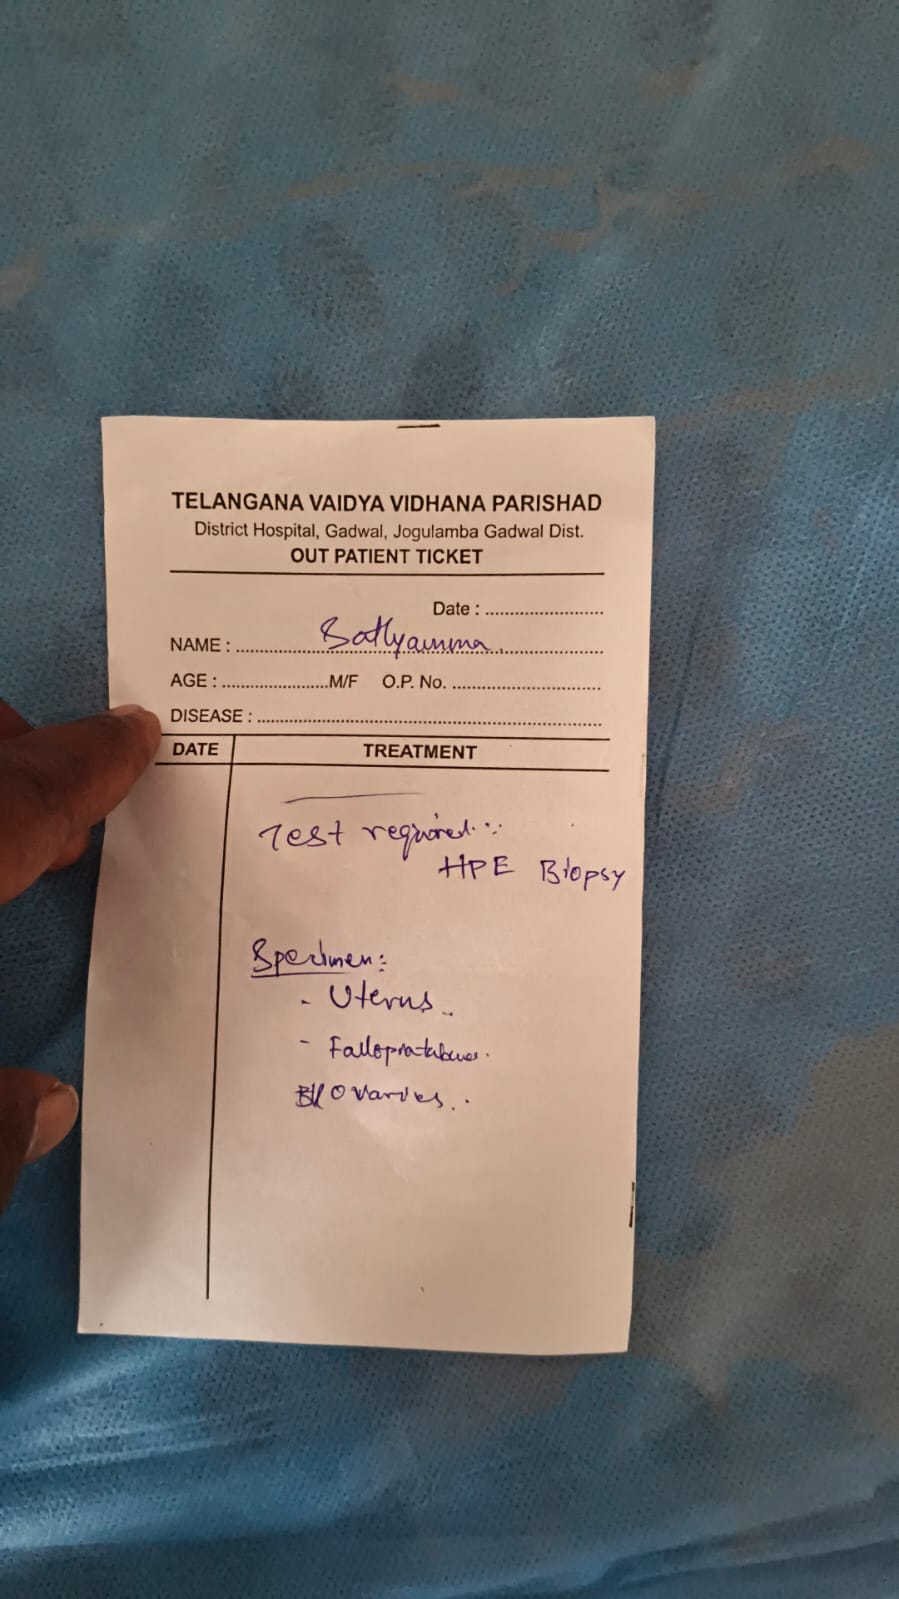 TELANGANA VAIDYA VIDHANA PARISHAD
District Hospital, Gadwal, Jogulamba Gadwal Dist.
OUT PATIENT TICKET
Date : ........................
NAME : Sathyamma
AGE : ........................M/F O.P. No. ................................
DISEASE : ........................................................................
DATE TREATMENT
Test required:
HPE Biopsy
Specimen:
- Uterus..
- Fallopiatubes.
B/L Ovaries..